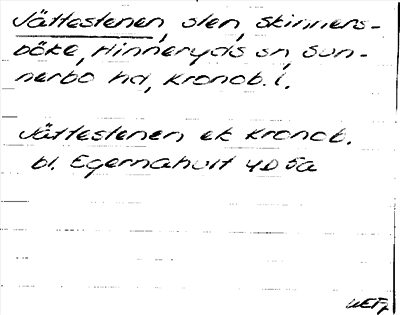 Jättestenen, sten, Skinners-
böke, Hinneryds sn, Sun-
nerbo hd, Kronob. l.
Jättestenen ek Kronob.
bl. Egernahult 4D 5a